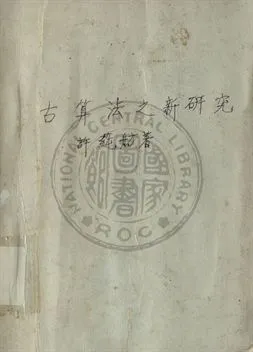 古算法之新研究
許莼舫著
NATIONAL CENTRAL LIBRARY
國家圖書館
ROC